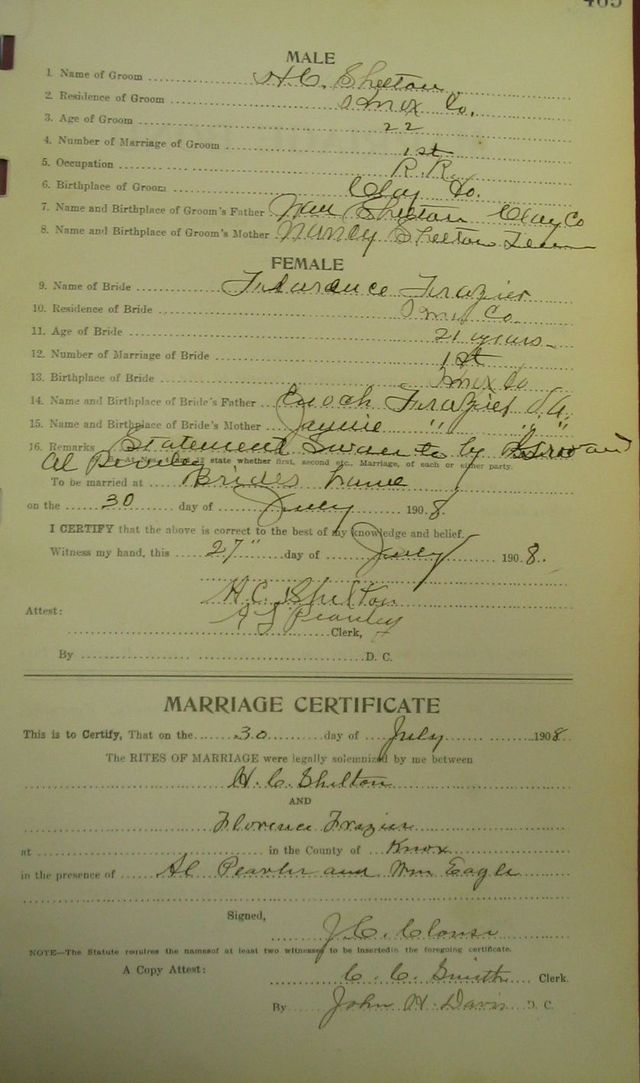 465
MALE
1. Name of Groom H. C. Shelton
2. Residence of Groom Knox Co.
3. Age of Groom 22
4. Number of Marriage of Groom 1st
5. Occupation R. R.
6. Birthplace of Groom Clay Co.
7. Name and Birthplace of Groom's Father Shelton Clay Co
8. Name and Birthplace of Groom's Mother Nancy Shelton Tenn
FEMALE
9. Name of Bride Frazier
10. Residence of Bride Knox Co
11. Age of Bride 21 years
12. Number of Marriage of Bride 1st
13. Birthplace of Bride Knox Co
14. Name and Birthplace of Bride's Father Enoch Frazier
15. Name and Birthplace of Bride's Mother " "
16. Remarks Statement by
Al state whether first, second etc., Marriage, of each or either party.
To be married at Brides
on the 30 day of July 1908
I CERTIFY that the above is correct to the best of my knowledge and belief.
Witness my hand, this 27" day of July 1908.
H. C. Shelton
Attest:
Clerk,
By D. C.
MARRIAGE CERTIFICATE
This is to Certify, That on the 30 day of July 1908
The RITES OF MARRIAGE were legally solemnized by me between
H. C. Shelton
AND
Florence Frazier
at in the County of Knox
in the presence of Al and Wm Eagle
Signed,
J. C.
NOTE—The Statute requires the names of at least two witnesses to be inserted in the foregoing certificate.
A Copy Attest: C. C. Smith Clerk.
By John H. Davis D. C.